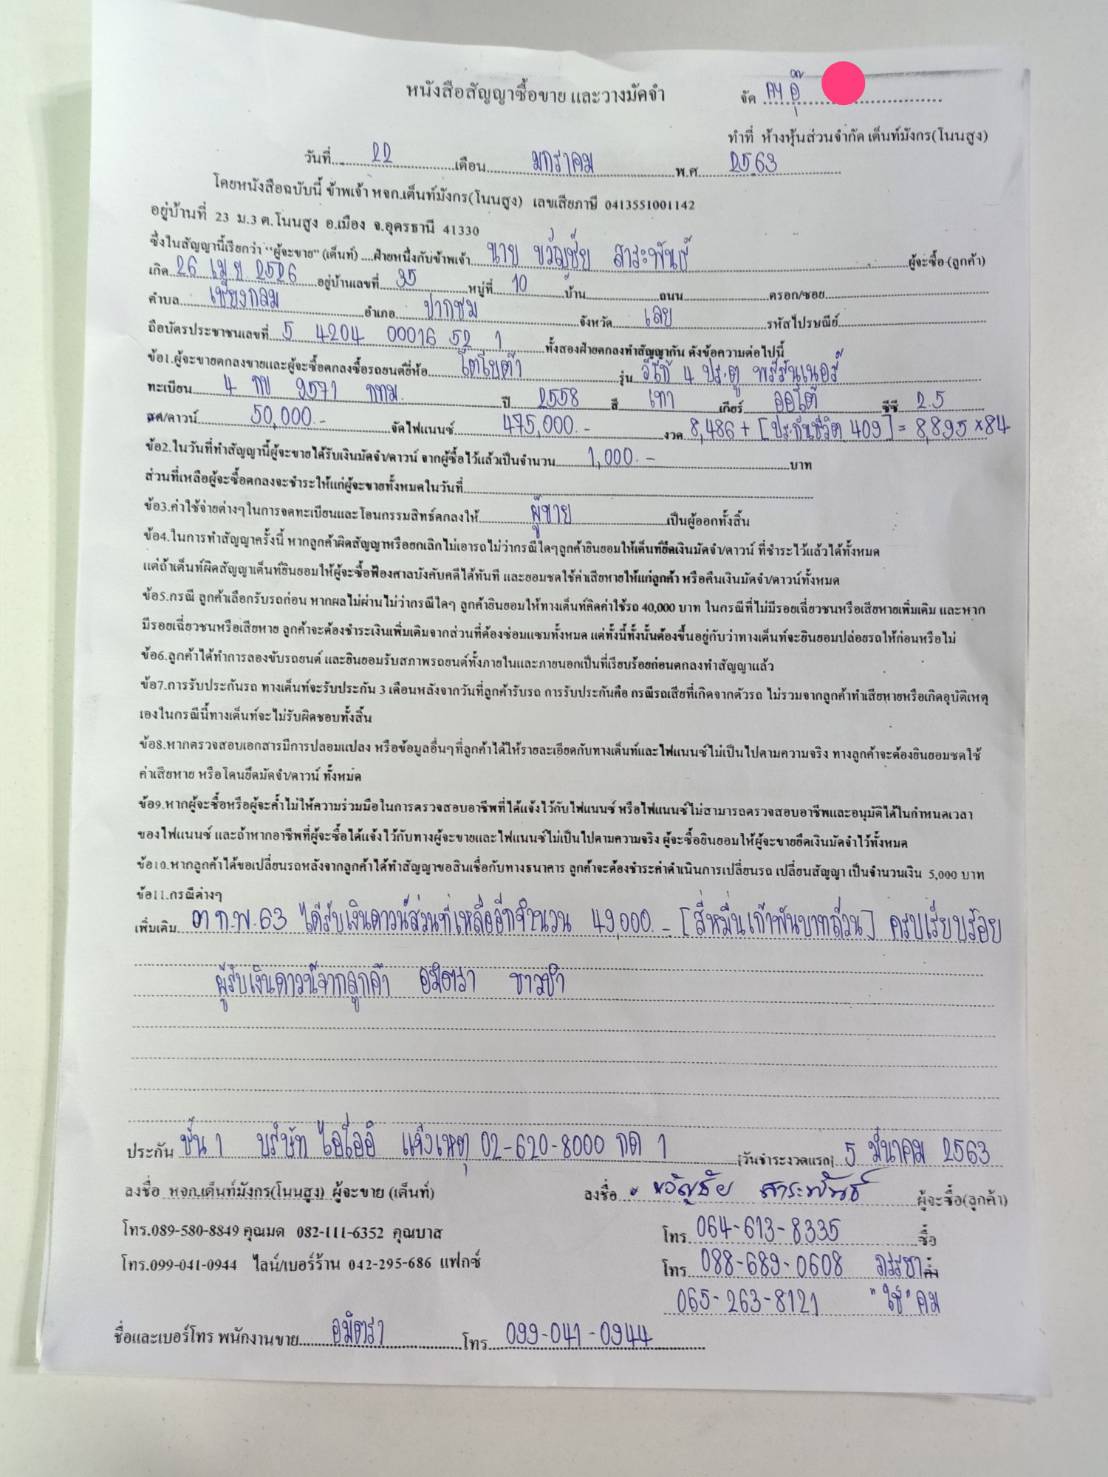 หนังสือสัญญาซื้อขาย และวางมัดจำ
จัด
ทำที่ ห้างหุ้นส่วนจำกัด เต็นท์มังกร(โนนสูง)
วันที่ 22 เดือน มกราคม พ.ศ. 2563
โดยหนังสือฉบับนี้ ข้าพเจ้า หจก.เต็นท์มังกร(โนนสูง) เลขเสียภาษี 0413551001142
อยู่บ้านที่ 23 ม.3 ต.โนนสูง อ.เมือง จ.อุดรธานี 41330
ซึ่งในสัญญานี้เรียกว่า "ผู้จะขาย" (เต็นท์) ....ฝ่ายหนึ่งกับข้าพเจ้า นาย ขวัญชัย สาระพันธ์ ผู้จะซื้อ (ลูกค้า)
เกิด 26 เม.ย 2526 อยู่บ้านเลขที่ 35 หมู่ที่ 10 บ้าน ถนน ตรอก/ซอย
ตำบล เชียงกลม อำเภอ ปากชม จังหวัด เลย รหัสไปรษณีย์
ถือบัตรประชาชนเลขที่ 5 4204 00016 52 1 ทั้งสองฝ่ายตกลงทำสัญญากัน ดังข้อความต่อไปนี้
ข้อ1.ผู้จะขายตกลงขายและผู้จะซื้อตกลงซื้อรถยนต์ยี่ห้อ โตโยต้า รุ่น วีโก้ 4 ประตู พรีรันเนอร์
ทะเบียน 4 กข 2571 กทม ปี 2558 สี เทา เกียร์ ออโต้ ซีซี 2.5
สด/ดาวน์ 50,000.- จัดไฟแนนซ์ 475,000.- งวด 8,486 + [ประกันชีวิต 409] = 8,895 x 84
ข้อ2.ในวันที่ทำสัญญานี้ผู้จะขายได้รับเงินมัดจำ/ดาวน์ จากผู้ซื้อไว้แล้วเป็นจำนวน 1,000.- บาท
ส่วนที่เหลือผู้จะซื้อตกลงจะชำระให้แก่ผู้จะขายทั้งหมดในวันที่
ข้อ3.ค่าใช้จ่ายต่างๆในการจดทะเบียนและโอนกรรมสิทธ์ตกลงให้ ผู้ขาย เป็นผู้ออกทั้งสิ้น
ข้อ4.ในการทำสัญญาครั้งนี้ หากลูกค้าผิดสัญญาหรือยกเลิกไม่เอารถไม่ว่ากรณีใดๆลูกค้ายินยอมให้เต็นท์ยึดเงินมัดจำ/ดาวน์ ที่ชำระไว้แล้วได้ทั้งหมด
แต่ถ้าเต็นท์ผิดสัญญาเต็นท์ยินยอมให้ผู้จะซื้อฟ้องศาลบังคับคดีได้ทันที และยอมชดใช้ค่าเสียหายให้แก่ลูกค้า หรือคืนเงินมัดจำ/ดาวน์ทั้งหมด
ข้อ5.กรณี ลูกค้าเลือกรับรถก่อน หากผลไม่ผ่านไม่ว่ากรณีใดๆ ลูกค้ายินยอมให้ทางเต็นท์คิดค่าใช้รถ 40,000 บาท ในกรณีที่ไม่มีรอยเฉี่ยวชนหรือเสียหายเพิ่มเติม และหาก
มีรอยเฉี่ยวชนหรือเสียหาย ลูกค้าจะต้องชำระเงินเพิ่มเติมจากส่วนที่ต้องซ่อมแซมทั้งหมด แต่ทั้งนี้ทั้งนั้นต้องขึ้นอยู่กับว่าทางเต็นท์จะยินยอมปล่อยรถให้ก่อนหรือไม่
ข้อ6.ลูกค้าได้ทำการลองขับรถยนต์ และยินยอมรับสภาพรถยนต์ทั้งภายในและภายนอกเป็นที่เรียบร้อยก่อนตกลงทำสัญญาแล้ว
ข้อ7.การรับประกันรถ ทางเต็นท์จะรับประกัน 3 เดือนหลังจากวันที่ลูกค้ารับรถ การรับประกันคือ กรณีรถเสียที่เกิดจากตัวรถ ไม่รวมจากลูกค้าทำเสียหายหรือเกิดอุบัติเหตุ
เองในกรณีนี้ทางเต็นท์จะไม่รับผิดชอบทั้งสิ้น
ข้อ8.หากตรวจสอบเอกสารมีการปลอมแปลง หรือข้อมูลอื่นๆที่ลูกค้าได้ให้รายละเอียดกับทางเต็นท์และไฟแนนซ์ไม่เป็นไปตามความจริง ทางลูกค้าจะต้องยินยอมชดใช้
ค่าเสียหาย หรือโดนยึดมัดจำ/ดาวน์ ทั้งหมด
ข้อ9.หากผู้จะซื้อหรือผู้จะค้ำไม่ให้ความร่วมมือในการตรวจสอบอาชีพที่ได้แจ้งไว้กับไฟแนนซ์ หรือไฟแนนซ์ไม่สามารถตรวจสอบอาชีพและอนุมัติได้ในกำหนดเวลา
ของไฟแนนซ์ และถ้าหากอาชีพที่ผู้จะซื้อได้แจ้งไว้กับทางผู้จะขายและไฟแนนซ์ไม่เป็นไปตามความจริง ผู้จะซื้อยินยอมให้ผู้จะขายยึดเงินมัดจำไว้ทั้งหมด
ข้อ10.หากลูกค้าได้ขอเปลี่ยนรถหลังจากลูกค้าได้ทำสัญญาขอสินเชื่อกับทางธนาคาร ลูกค้าจะต้องชำระค่าดำเนินการเปลี่ยนรถ เปลี่ยนสัญญา เป็นจำนวนเงิน 5,000 บาท
ข้อ11.กรณีต่างๆ
เพิ่มเติม ก.พ. 63 ได้รับเงินดาวน์ส่วนที่เหลืออีกจำนวน 49,000.- [สี่หมื่นเก้าพันบาทถ้วน] ครบเรียบร้อย
ผู้รับเงินดาวน์จากลูกค้า อมิตรา
ประกัน ชั้น 1 บริษัท ไอโออิ แจ้งเหตุ 02-620-8000 กด 1 (วันชำระงวดแรก) 5 มีนาคม 2563
ลงชื่อ หจก.เต็นท์มังกร(โนนสูง) ผู้จะขาย (เต็นท์) ลงชื่อ ขวัญชัย สาระพันธ์ ผู้จะซื้อ(ลูกค้า)
โทร.089-580-8849 คุณมด 082-111-6352 คุณบาส โทร. 064-613-8335 ซื้อ
โทร.099-041-0944 ไลน์/เบอร์ร้าน 042-295-686 แฟกซ์ โทร 088-689-0608 ภรรยา
065-263-8121
ชื่อและเบอร์โทร พนักงานขาย อมิตรา โทร 099-041-0944